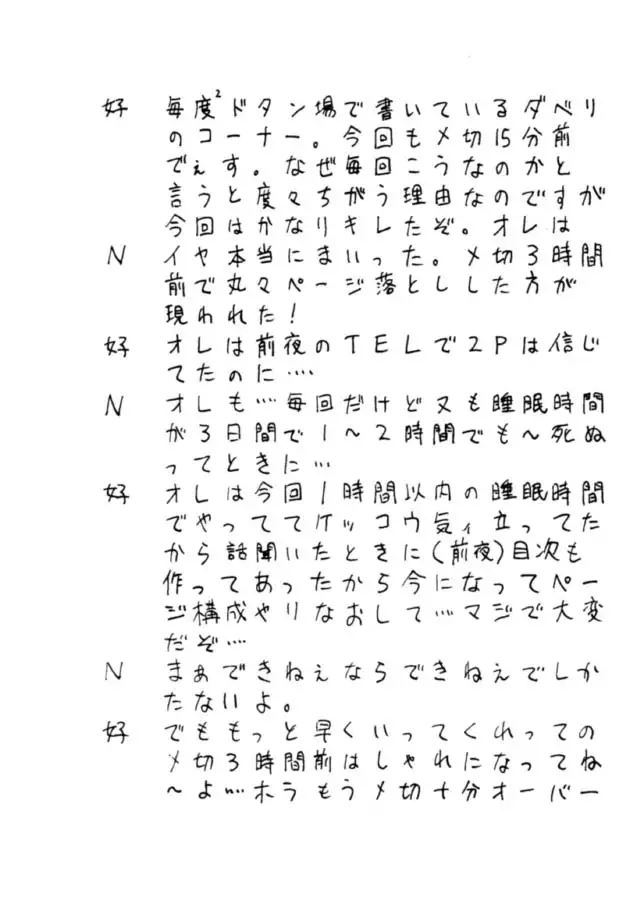 好 毎度²ドタン場で書いているダベリ
のコーナー。今回も〆切15分前
でぇす。なぜ毎回こうなのかと
言うと度々ちがう理由なのですが
今回はかなりキレたぞ。オレは
N イヤ本当にまいった。〆切3時間
前で丸々ページ落としした方が
現われた!
好 オレは前夜のTELで2Pは信じ
てたのに‥‥
N オレも…毎回だけど又も睡眠時間
が3日間で1〜2時間でも〜死ぬ
ってときに…
好 オレは今回1時間以内の睡眠時間
でやっててケッコウ気ィ立ってた
から話聞いたときに(前夜)目次も
作ってあったから今になってペー
ジ構成やりなおして…マジで大変
だぞ…
N まぁできねぇならできねぇでしか
たないよ。
好 でももっと早くいってくれっての
〆切3時間前はしゃれになってね
〜よ‥‥ホラもう〆切十分オーバー